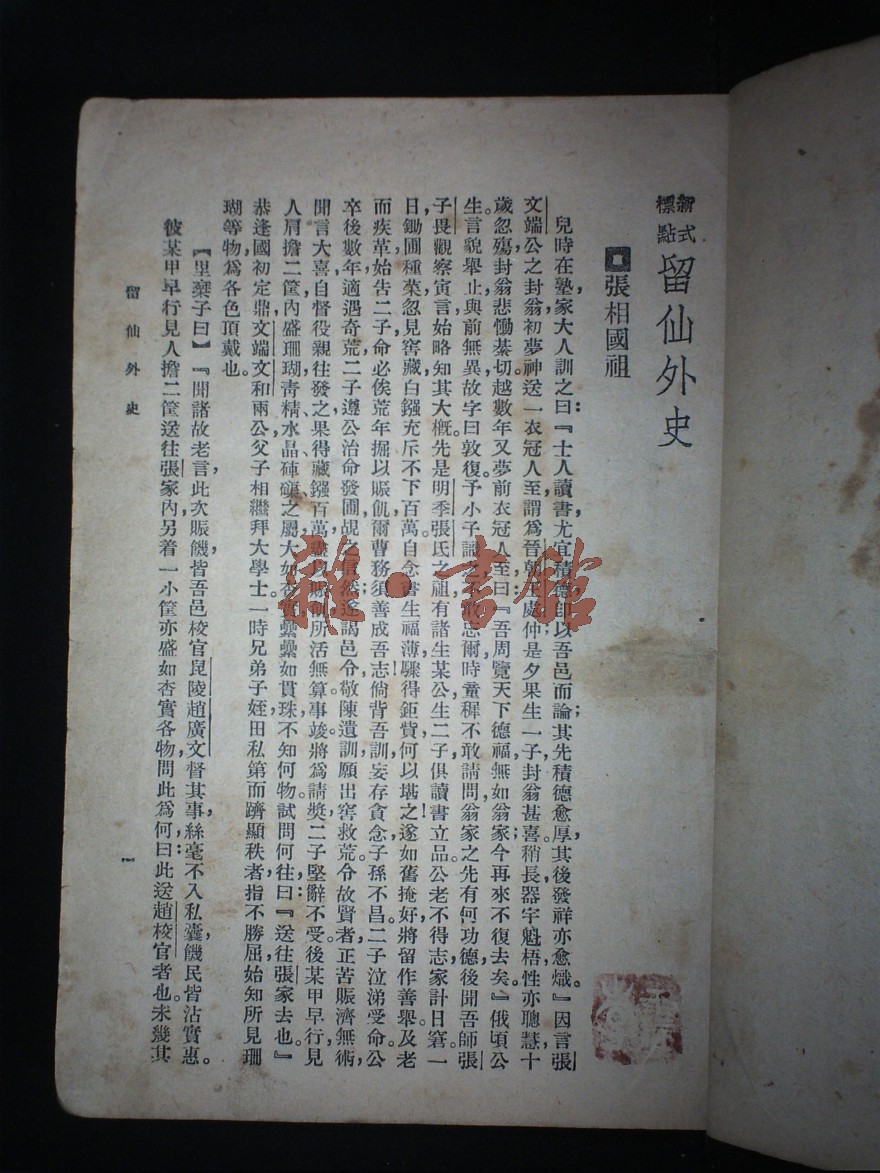 新式標點 留仙外史
張相國祖
兒時在塾家大人訓之曰：『士人讀書，尤宜積德；卽以吾邑而論；其先積德愈厚，其後發祥亦愈熾。』因言張
文端公之封翁，初夢神送一衣冠人至，謂爲晉朝王處仲，是夕果生一子，封翁甚喜。稍長，器宇魁梧，性亦聰慧，十
歲忽殤，封翁悲慟綦切。越數年，又夢前衣冠人至，曰：『吾周覽天下，德福無如翁家；今再來不復去矣。』俄頃公
生。言貌舉止，與前無異，故字曰敦復。予小子識之，不敢忘。爾時童穉，不敢請問翁家之先有何功德，後聞吾師張
子畏觀察寅言，始略知其大槪。先是明季張氏之祖有諸生某公，生二子，俱讀書立品。公老不得志，家計日窘。一
日鋤圃種菜，忽見窖藏白鏹充斥，不下百萬。自念書生福薄，驟得鉅貲，何以堪之！遂如舊掩好，將留作善舉，及老
而疾革，始吿二子，命必俟荒年掘以賑飢，爾曹務須善成吾志！倘背吾訓，妄存貪念，子孫不昌。二子泣涕受命。公
卒後數年，適遇奇荒，二子遵公治命，發圃覘之，信然；遂謁邑令，敬陳遺訓，願出窖救荒。令故賢者，正苦賑濟無術，
聞言大喜，自督役親往發之，果得藏鏹百萬，盡以賑飢，所活無算。事竣，將爲請奬，二子堅辭不受。後某甲早行，見
人肩擔二筐，內盛珊瑚、靑精、水晶、硨磲之屬，大如杏實，纍纍如貫珠，不知何物。試問何往？曰：『送往張家去也。』
恭逢國初定鼎，文端文和兩公，父子相繼拜大學士。一時兄弟子姪，田私第而躋顯秩者，指不勝屈，始知所見珊
瑚等物，爲各色頂戴也。
【里藥子曰】『聞諸故老言，此次賑饑，皆吾邑校官毘陵趙廣文督其事，絲毫不入私囊，饑民皆沾實惠。
彼某甲早行，見人擔二筐送往張家內，另着一小筐，亦盛如杏實各物，問此爲何？曰：此送趙校官者也。未幾，其
留仙外史
一
雜·書館